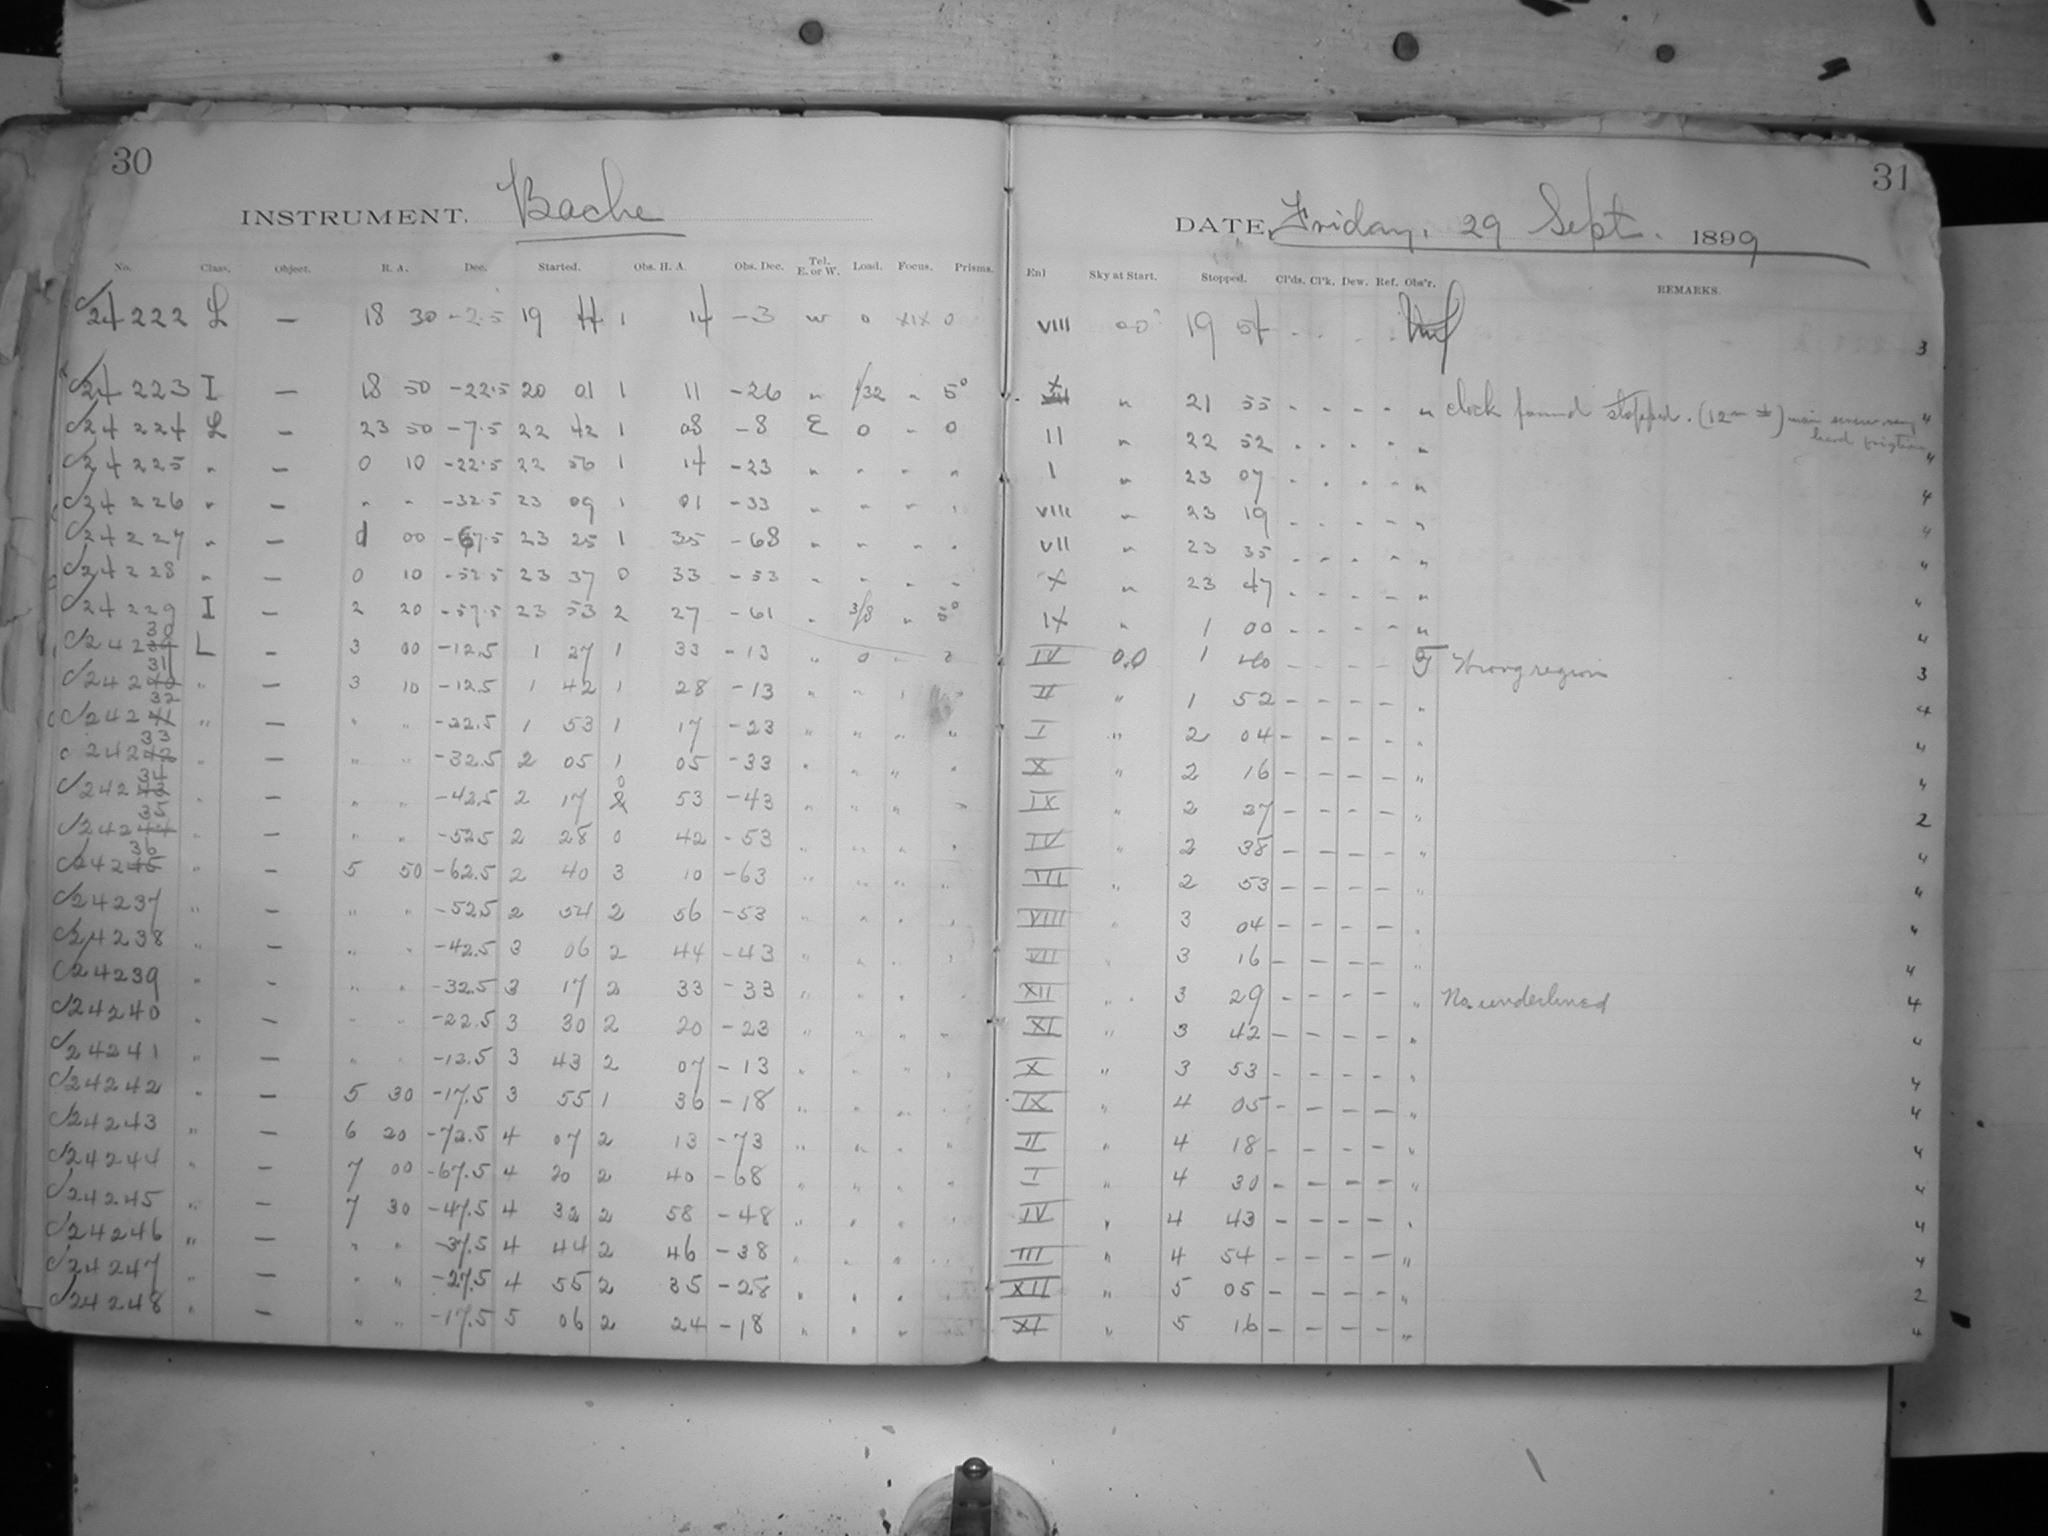 30
INSTRUMENT. Bache
No. Class. Object. R. A. Dec. Started. Obs. H. A. Obs. Dec. Tel. E. or W. Load. Focus. Prisms.
24222 L — 18 30 -2.5 19 44 1 14 -3 W 0 XIX 0
24223 I — 18 50 -22.5 20 01 1 11 -26 " 1/32 " 5°
24224 L — 23 50 -7.5 22 42 1 08 -8 E 0 " 0
24225 " — 0 10 -22.5 22 56 1 14 -23 " " " "
24226 " — " " -32.5 23 09 1 01 -33 " " " "
24227 " — 1 00 -67.5 23 25 1 35 -68 " " " "
24228 " — 0 10 -52.5 23 37 0 33 -53 " " " "
24229 I — 2 20 -57.5 23 53 2 27 -61 " 3/8 " 5°
24230 L — 3 00 -12.5 1 27 1 33 -13 " 0 " 0
24231 " — 3 10 -12.5 1 42 1 28 -13 " " "
24232 " — " " -22.5 1 53 1 17 -23 " " " "
24233 " — " " -32.5 2 05 1 05 -33 " " " "
24234 " — " " -42.5 2 17 0 53 -43 " " " "
24235 " — " " -52.5 2 28 0 42 -53 " " " "
24236 " — 5 50 -62.5 2 40 3 10 -63 " " " "
24237 " — " " -52.5 2 54 2 56 -53 " " " "
24238 " — " " -42.5 3 06 2 44 -43 " " " "
24239 " — " " -32.5 3 17 2 33 -33 " " " "
24240 " — " " -22.5 3 30 2 20 -23 " " " "
24241 " — " " -12.5 3 43 2 07 -13 " " " "
24242 " — 5 30 -17.5 3 55 1 36 -18 " " " "
24243 " — 6 20 -72.5 4 07 2 13 -73 " " " "
24244 " — 7 00 -67.5 4 20 2 40 -68 " " " "
24245 " — 7 30 -47.5 4 32 2 58 -48 " " " "
24246 " — " " -37.5 4 44 2 46 -38 " " " "
24247 " — " " -27.5 4 55 2 35 -28 " " " "
24248 " — " " -17.5 5 06 2 24 -18 " " "
31
DATE, Friday, 29 Sept. 1899
Enl Sky at Start. Stopped. Cl'ds. Cl'k. Dew. Ref. Obs'r. REMARKS.
VIII 00 19 54 - - - - 3
X " 21 55 - - - - " clock found stopped. (12m ±) main screw very "
hard
II " 22 52 - - - - " "
I " 23 07 - - - - " 4
VIII " 23 19 - - - - " "
VII " 23 35 - - - - " "
X " 23 47 - - - - " "
IX " 1 00 - - - - " "
IV 0.0 1 40 - - - - Wrong region 3
II " 1 52 - - - - " 4
I " 2 04 - - - - " "
X " 2 16 - - - - " "
IX " 2 27 - - - - " 2
IV " 2 38 - - - - " "
III " 2 53 - - - - " "
VIII " 3 04 - - - - " "
VII " 3 16 - - - - " "
XII " 3 29 - - - - " No. underlined 4
XI " 3 42 - - - - " "
X " 3 53 - - - - " "
IX " 4 05 - - - - " "
II " 4 18 - - - - " "
I " 4 30 - - - - " "
IV " 4 43 - - - - " "
III " 4 54 - - - - " "
XII " 5 05 - - - - " 2
XI " 5 16 - - - - " 4